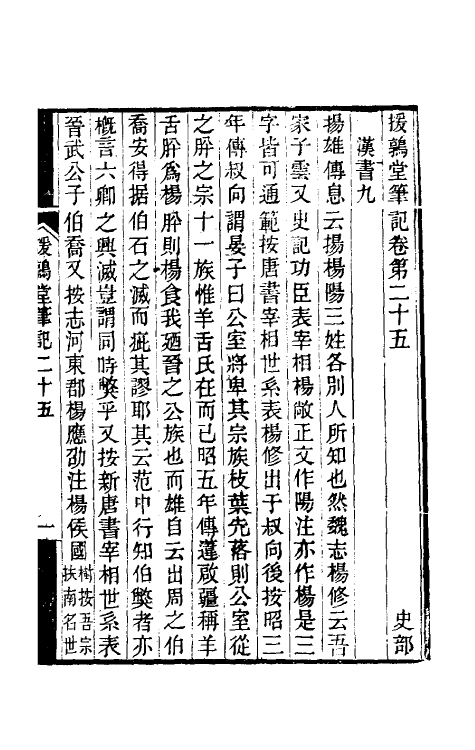 援鶉堂筆記卷第二十五　史部
漢書九
揚雄傳息云揚楊陽三姓各別人所知也然魏志楊修云吾
家子雲又史記功臣表宰相楊敞正文作陽注亦作楊是三
字皆可通範按唐書宰相世系表楊修出于叔向後按昭三
年傳叔向謂晏子曰公室將卑其宗族枝葉先落則公室從
之肸之宗十一族惟羊舌氏在而已昭五年傳薳啟疆稱羊
舌肸爲楊肸則楊食我廼晉之公族也而雄自云出周之伯
喬安得据伯石之滅而疵其謬耶其云范中行知伯獘者亦
槪言六卿之興滅豈謂同時獘乎又按新唐書宰相世系表
晉武公子伯喬又按志河東郡楊應劭注楊侯國
樹按吾宗
扶南名世
援鶉堂筆記二十五
一